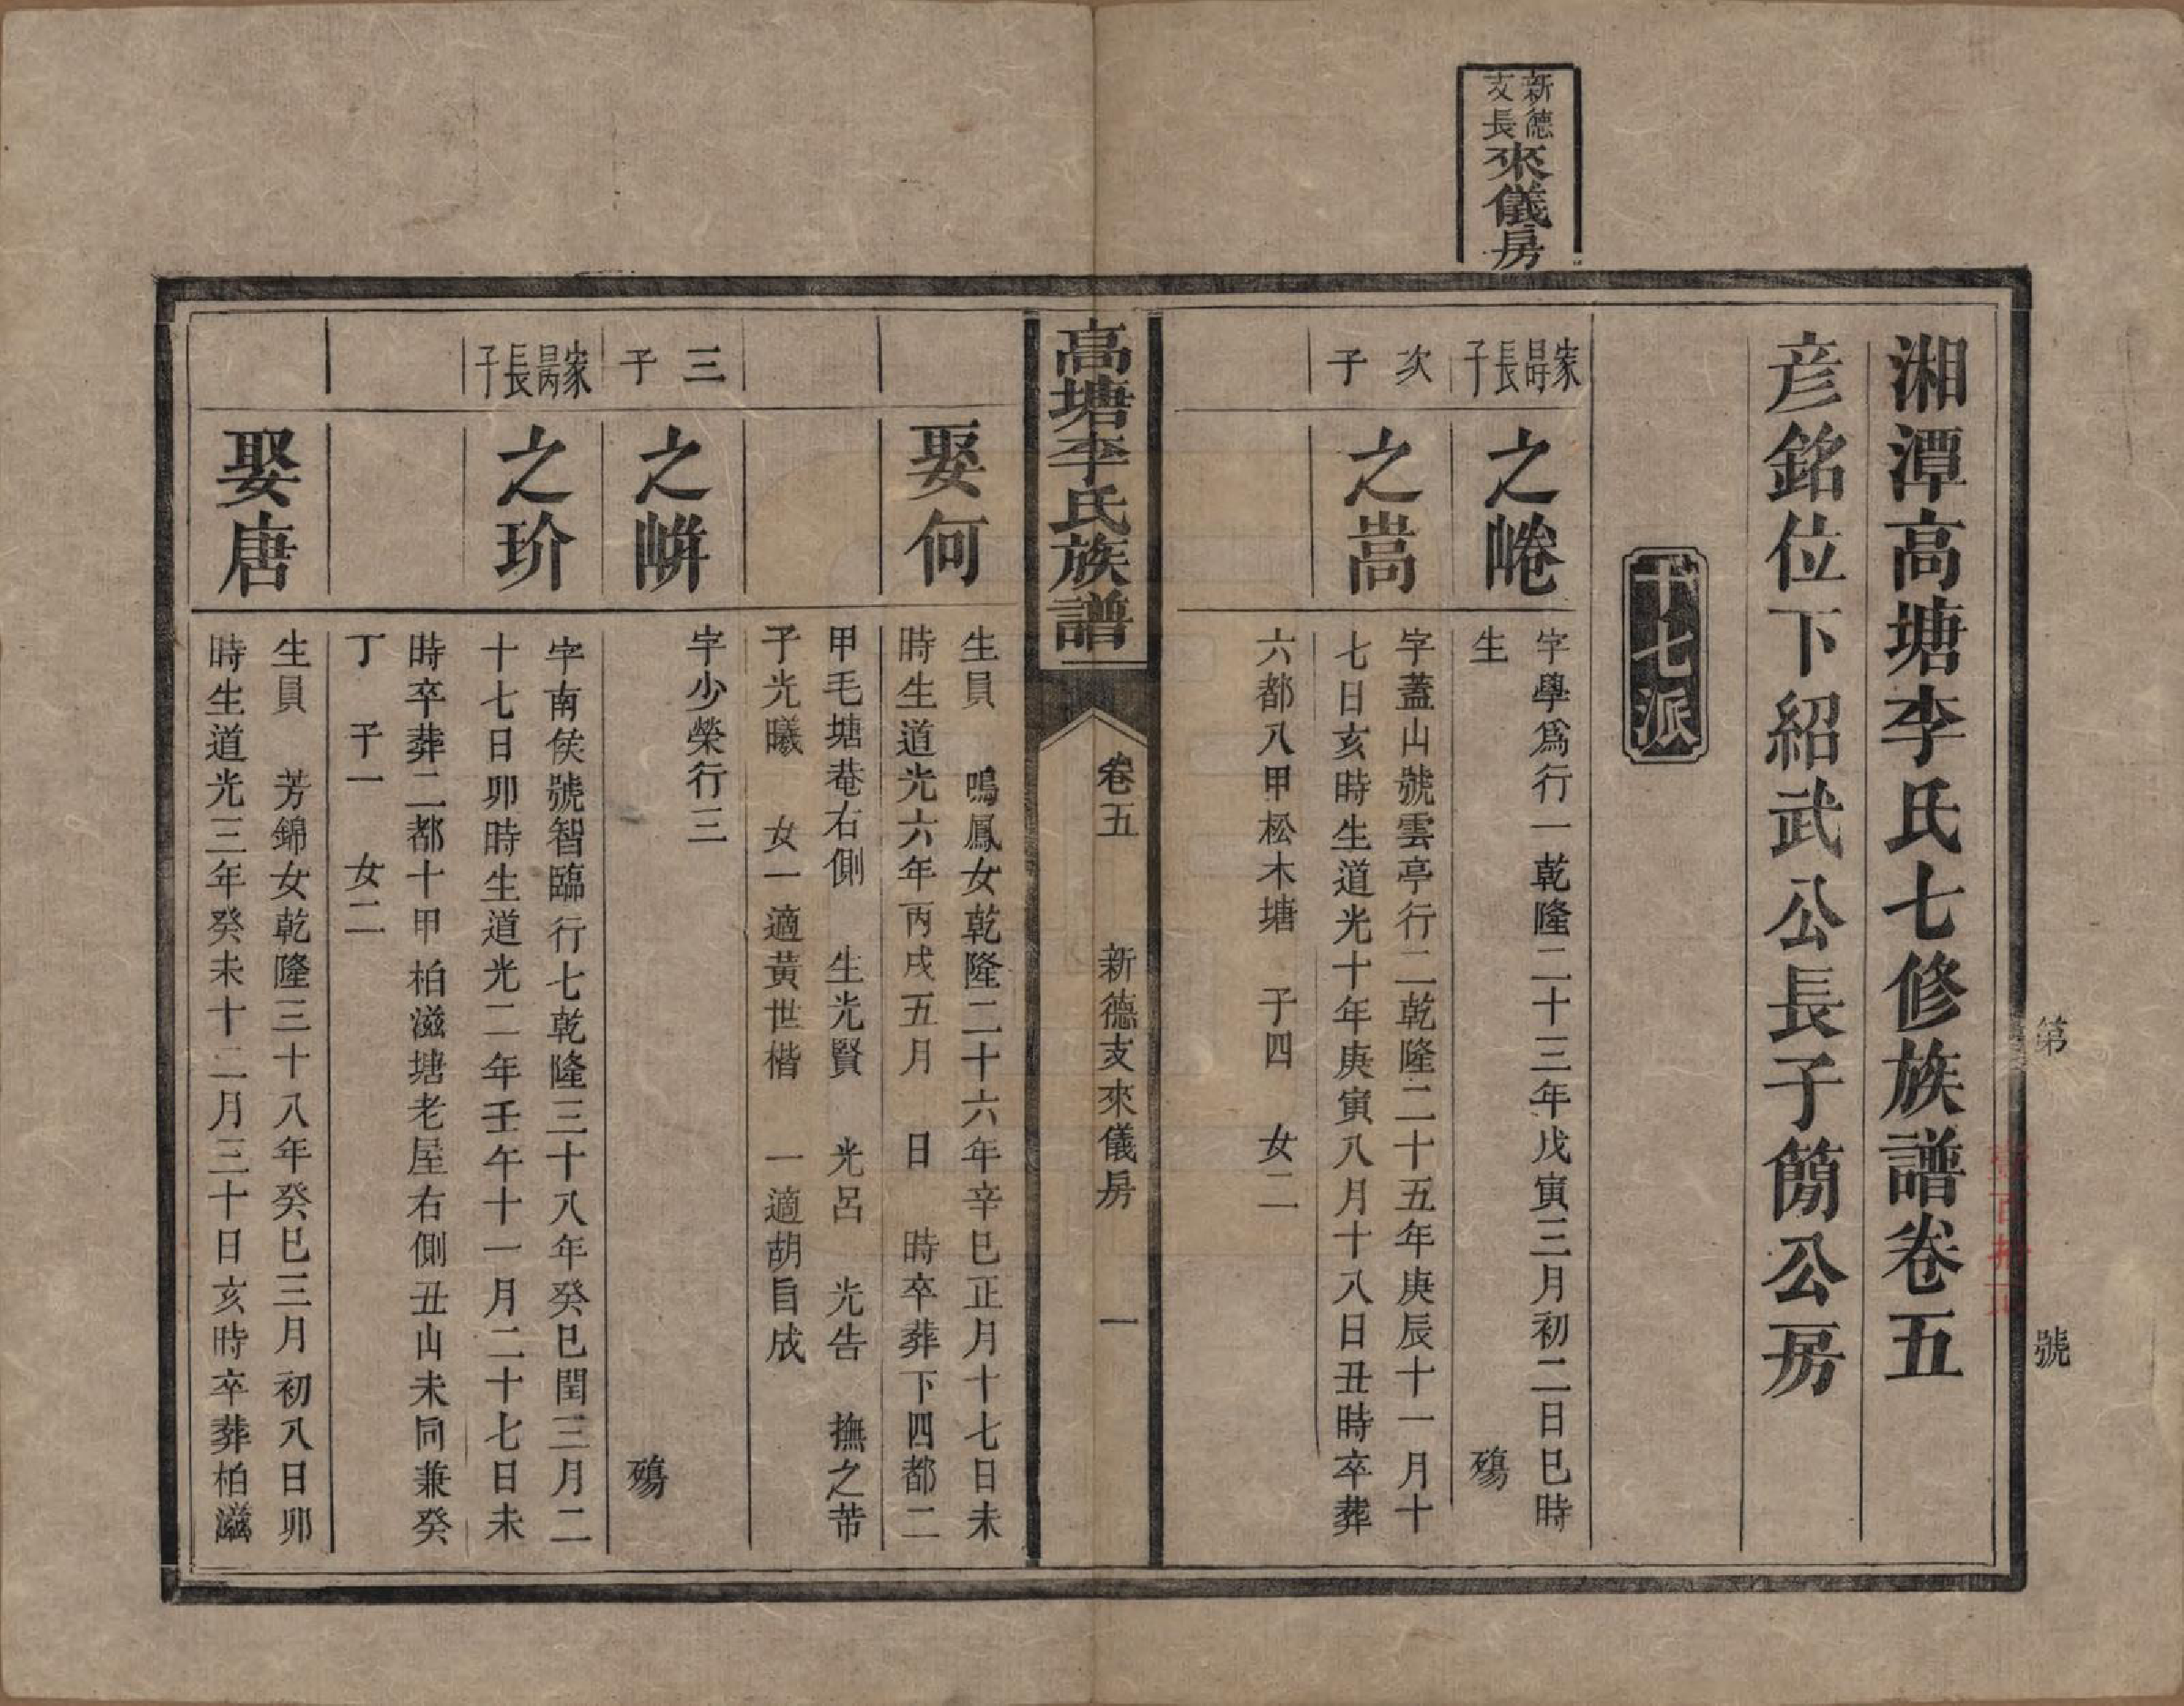 新德
支長
來儀房
湘潭高塘李氏七修族譜卷五
彦銘位下紹武公長子簡公房
十七派
家㫭長子
之崣
字學爲行一乾隆二十三年戊寅三月初二日巳時
生　殤
次子
之嵩
字蓋山號雲亭行二乾隆二十五年庚辰十一月十
七日亥時生道光十年庚寅八月十八日丑時卒葬
六都八甲松木塘　子四　女二
高塘李氏族譜
卷五　新德支來儀房　一
娶何
生員　鳴鳳女乾隆二十六年辛巳正月十七日未
時生道光六年丙戌五月　日　時卒葬下四都二
甲毛塘菴右側　生光賢　光呂　光告　撫之芾
子光曦　女一適黃世楷　一適胡旨成
三子
之㟁
字少榮行三
殤
家昺長子
之玠
字南侯號智臨行七乾隆三十八年癸巳閏三月二
十七日卯時生道光二年壬午十一月二十七日未
時卒葬二都十甲柏滋塘老屋右側丑山未同兼癸
丁　子一　女二
娶唐
生員　芳錦女乾隆三十八年癸巳三月初八日卯
時生道光三年癸未十二月三十日亥時卒葬柏滋
第　號